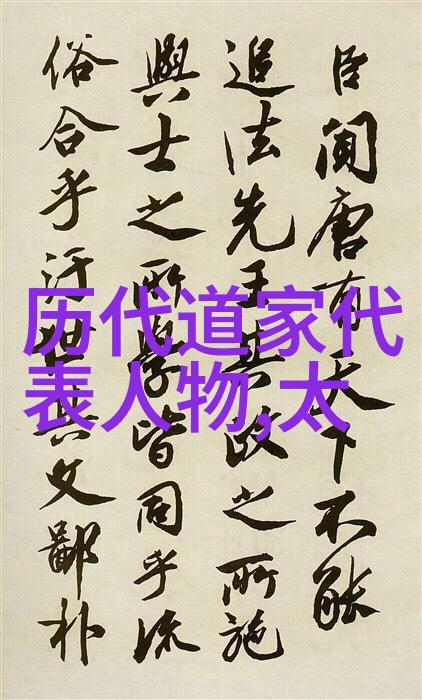 臣聞唐有天下不能
追法先王其政之所施
與士之所學皆同乎流
俗合乎汙世其文鄙朴
历代道家代
表人物,太